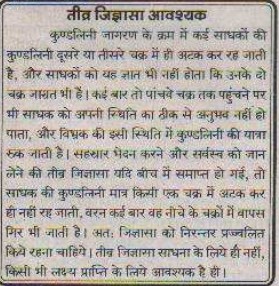 तीव्र जिज्ञासा आवश्यक
कुण्डलिनी जागरण के क्रम में कई साधकों की
कुण्डलिनी दूसरे या तीसरे चक्र में ही अटक कर रह जाती
है, और साधकों को यह ज्ञात भी नहीं होता कि उनके दो
चक्र जाग्रत भी हैं। कई बार तो पांचवे चक्र तक पहुंचने पर
भी साधक को अपनी स्थिति का ठीक से अनुभव नहीं हो
पाता, और विभ्रम की इसी स्थिति में कुण्डलिनी की यात्रा
रुक जाती है। सहस्रार भेदन करने और सर्वस्व को जान
लेने की तीव्र जिज्ञासा यदि बीच में समाप्त हो गई, तो
साधक की कुण्डलिनी मात्र किसी एक चक्र में अटक कर
ही नहीं रह जाती, वरन कई बार वह नीचे के चक्रों में वापस
गिर भी जाती है। अतः जिज्ञासा को निरन्तर प्रज्वलित
किये रहना चाहिये। तीव्र जिज्ञासा साधना के लिये ही नहीं,
किसी भी लक्ष्य प्राप्ति के लिये आवश्यक है ही।